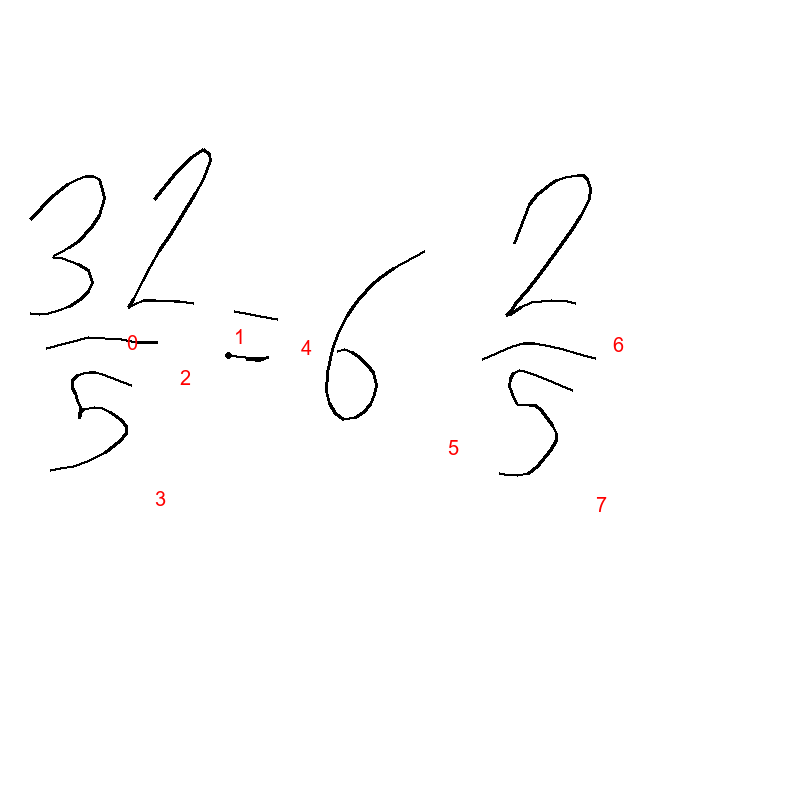 32/5 = 6 2/5
0 1 2 3 4 5 6 7